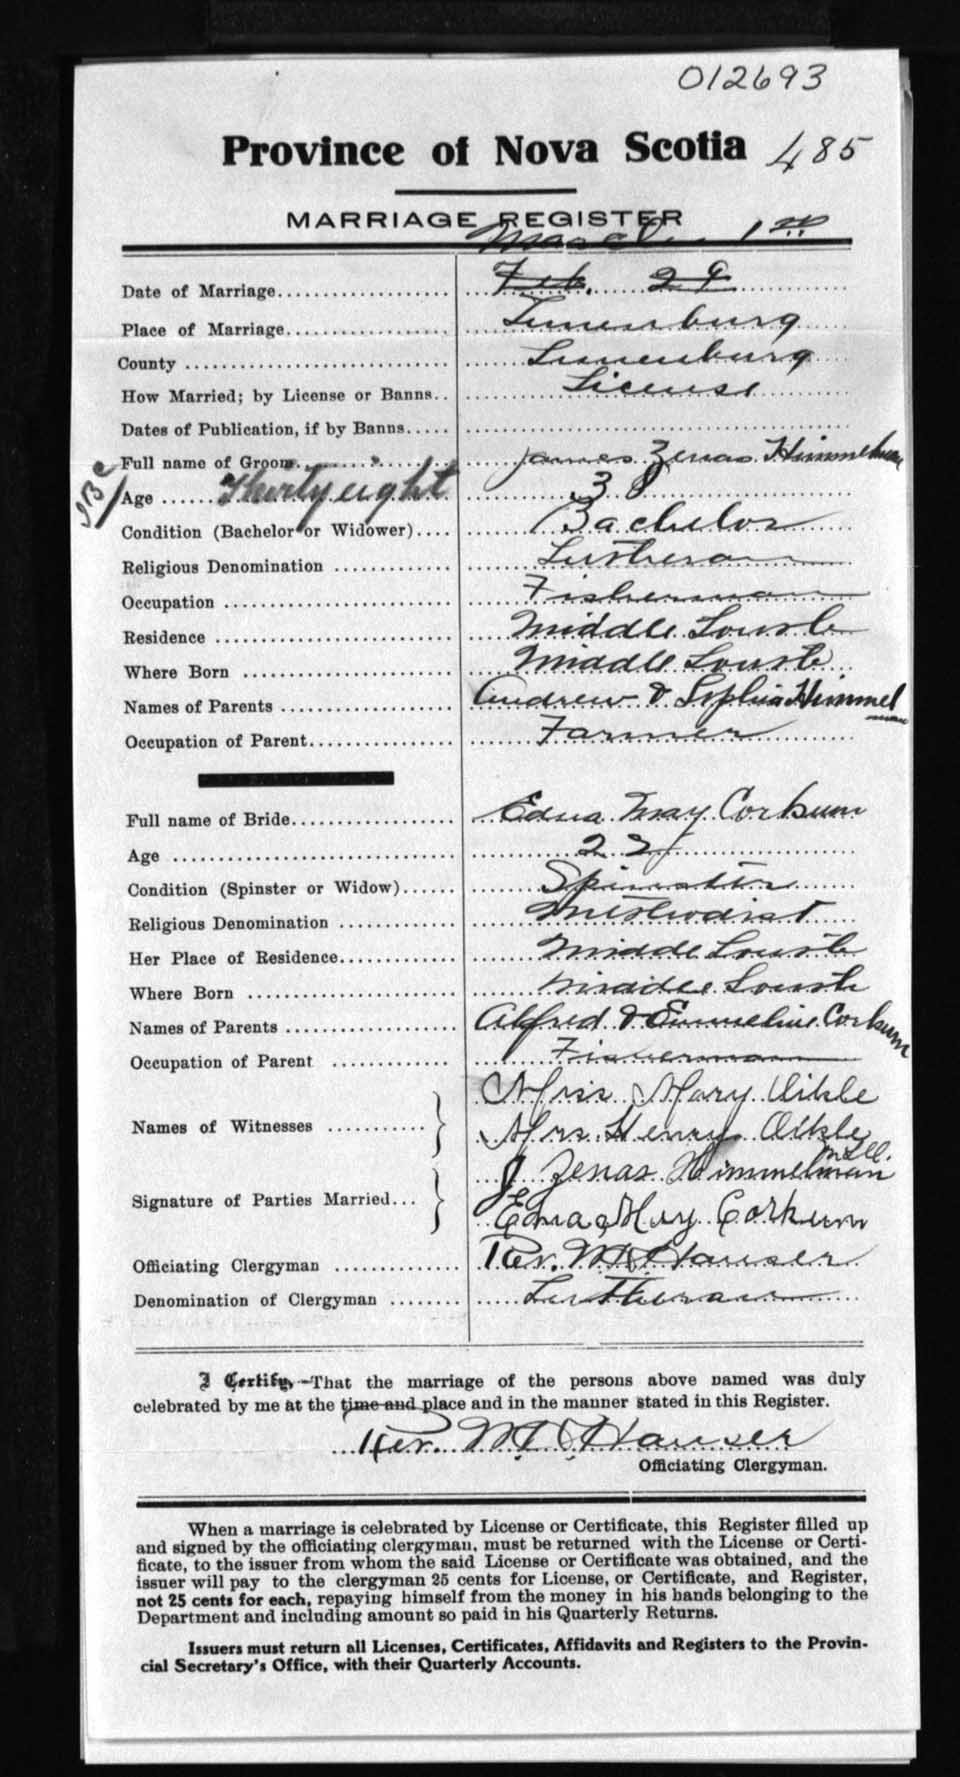 012693
Province of Nova Scotia 485
MARRIAGE REGISTER
March 1st
Date of Marriage Feb. 29
Place of Marriage Lunenburg
County Lunenburg
How Married; by License or Banns License
Dates of Publication, if by Banns
Full name of Groom James Zenas Himmelman
Age Thirty eight 38
Condition (Bachelor or Widower) Bachelor
Religious Denomination Lutheran
Occupation Fisherman
Residence Middle South
Where Born Middle South
Names of Parents Andrew & Sophia Himmelman
Occupation of Parent Farmer
Full name of Bride Edna May Corkum
Age 22
Condition (Spinster or Widow) Spinster
Religious Denomination Methodist
Her Place of Residence Middle South
Where Born Middle South
Names of Parents Alfred & Emmeline Corkum
Occupation of Parent Fisherman
Miss Mary Eikle
Names of Witnesses Mrs Henry Eikle
J Zenas Himmelman
Signature of Parties Married Edna May Corkum
Officiating Clergyman Rev. Hauser
Denomination of Clergyman Lutheran
I Certify,—That the marriage of the persons above named was duly
celebrated by me at the time and place and in the manner stated in this Register.
Rev. Hauser
Officiating Clergyman.
When a marriage is celebrated by License or Certificate, this Register filled up
and signed by the officiating clergyman, must be returned with the License or Certi-
ficate, to the issuer from whom the said License or Certificate was obtained, and the
issuer will pay to the clergyman 25 cents for License, or Certificate, and Register,
not 25 cents for each, repaying himself from the money in his hands belonging to the
Department and including amount so paid in his Quarterly Returns.
Issuers must return all Licenses, Certificates, Affidavits and Registers to the Provin-
cial Secretary's Office, with their Quarterly Accounts.